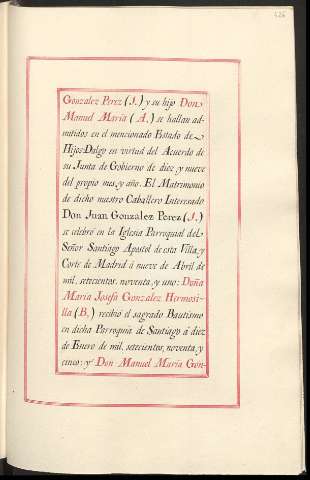 Gonzalez Perez (J.) y su hijo Don
Manuel Maria (A.) se hallan ad-
mitidos en el mencionado Estado de
Hijos-Dalgo en virtud del Acuerdo de
su Junta de Gobierno de diez y nueve
del propio mes, y año. El Matrimonio
de dicho nuestro Caballero Interesado
Don Juan Gonzalez Perez (J.)
se celebró en la Iglesia Parroquial del
Señor Santiago Apostol de esta Villa, y
Corte de Madrid á nueve de Abril de
mil, setecientos, noventa, y uno: Doña
Maria Josefa Gonzalez Hermosi-
lla (B.) recibió el sagrado Bautismo
en dicha Parroquia de Santiago á diez
de Enero de mil, setecientos, noventa, y
cinco: y Don Manuel Maria Gon-